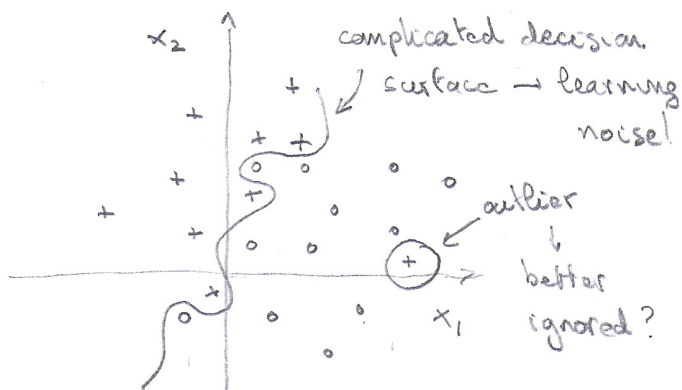 x₂
complicated decision
surface → learning
noise!
outlier
better
ignored?
x₁